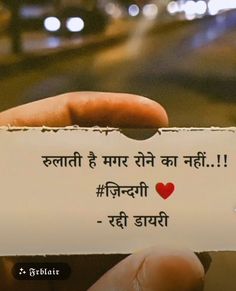 रुलाती है मगर रोने का नहीं..!!
#ज़िन्दगी ❤️
- रद्दी डायरी
Frblair